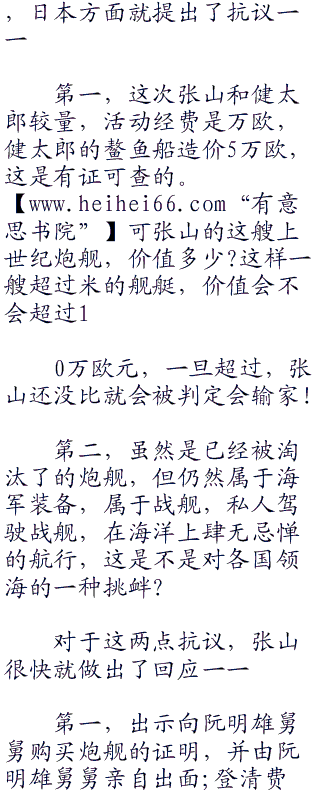 ，日本方面就提出了抗议一
一
第一，这次张山和健太
郎较量，活动经费是万欧，
健太郎的鳌鱼船造价5万欧，
这是有证可查的。
【www.heihei66.com“有意
思书院”】可张山的这艘上
世纪炮舰，价值多少?这样一
艘超过米的舰艇，价值会不
会超过1
0万欧元，一旦超过，张
山还没比就会被判定会输家!
第二，虽然是已经被淘
汰了的炮舰，但仍然属于海
军装备，属于战舰，私人驾
驶战舰，在海洋上肆无忌惮
的航行，这是不是对各国领
海的一种挑衅?
对于这两点抗议，张山
很快就做出了回应一一
第一，出示向阮明雄舅
舅购买炮舰的证明，并由阮
明雄舅舅亲自出面;登清费